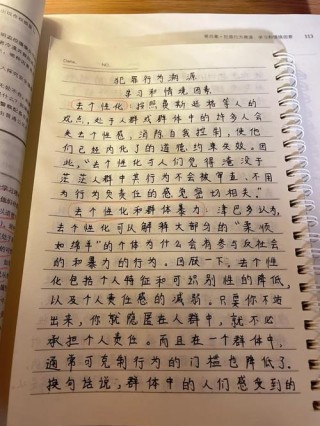 113
犯罪行为溯源
学习和情境因素
去个性化：按照费斯廷格等人的
观点，处于人群或群体中的许多人会
失去个性感，消除自我控制，使他
们已经内化了的道德约束失效。因
此，“去个性化与人们觉得淹没于
茫茫人群中其行为不会被审查、不用
为行为负责任的感觉密切相关。”
去个性化和群体暴力：津巴多认为，
去个性化可以解释大部分的“柔顺
如绵羊”的个体为什么会有参与反社会
的和暴力的行为。回顾一下，去个性
化包括个人特征和可辨别性的降低，
以及个人责任感的减弱。只要你不站
出来，你就隐匿在人群中，就不必
承担个人责任。而且在一个群体中，
通常可克制行为的门槛也降低了。
换句话说，群体中的人们感受到的